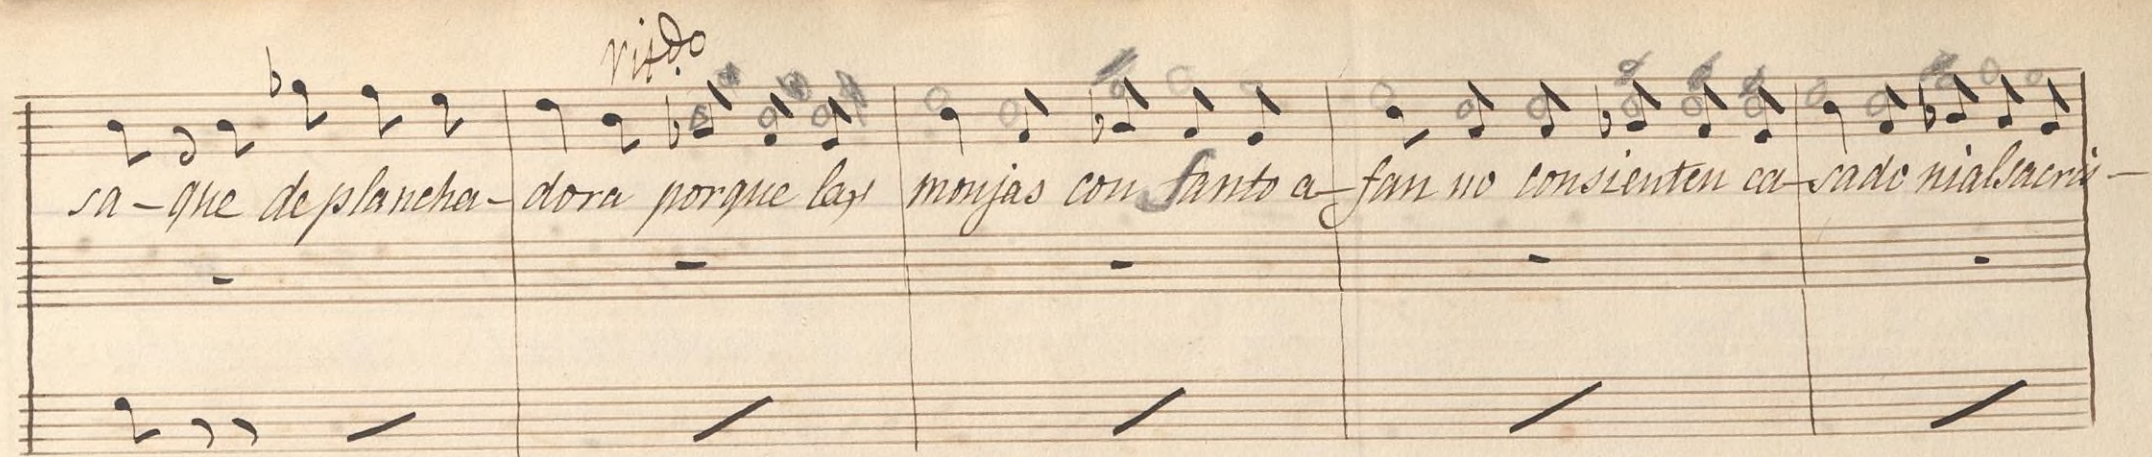 ritdo
sa-que de plancha-dora porque las monjas con santo a-fan no consienten ca-sado ni al sacris-